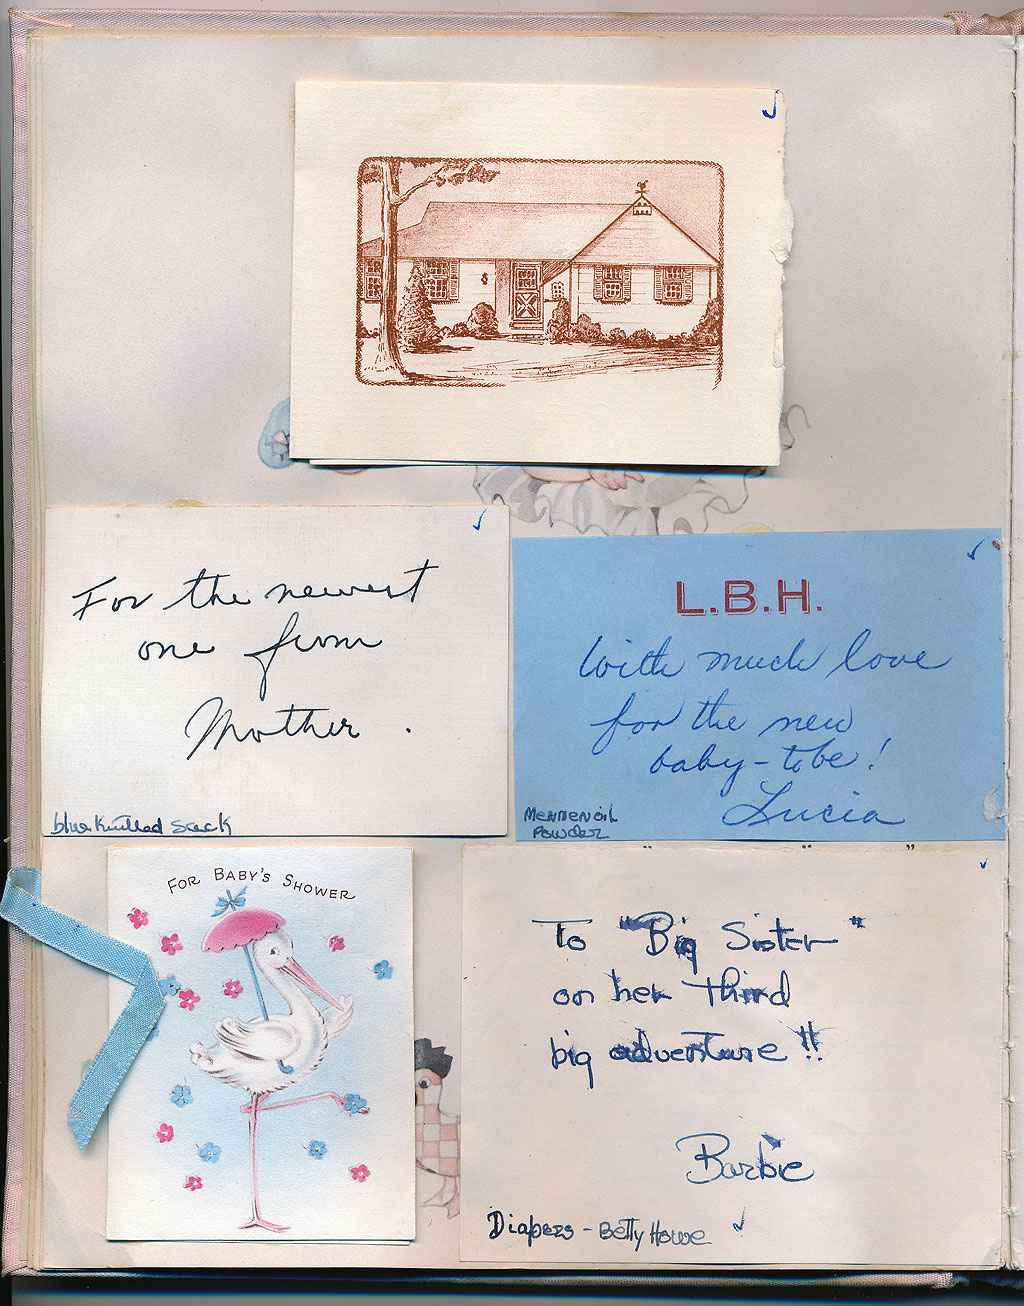 For the newest
one from
Mother.
blue knitted sack
L.B.H.
With much love
for the new
baby-to be!
Lucia
Mennen oil
Powder
FOR BABY'S SHOWER
To "Big Sister"
on her third
big adventure!!
Barbie
Diapers - Betty Howe